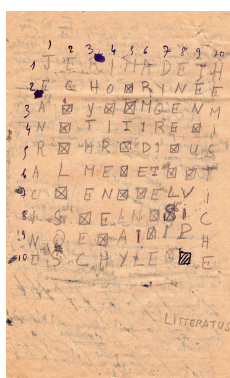 1 2 3 4 5 6 7 8 9 10
1 J E R I M A D E T H
2 E C H O ☒ R Y N E E
3 A ☒ Y ☒ ☒ M O E N M
4 N ☒ T I T I R E ☒ I
5 R ☒ H R ☒ D I ☒ U S
6 A L M E ☒ E T ☒ T
7 U ☒ E N ☒ ☒ E L V I
8 A S ☒ E L N ☒ S I C
9 N O E ☒ A I ☒ I P H
10 E S C H Y L E ☒ ☒ E
LITTERATUS